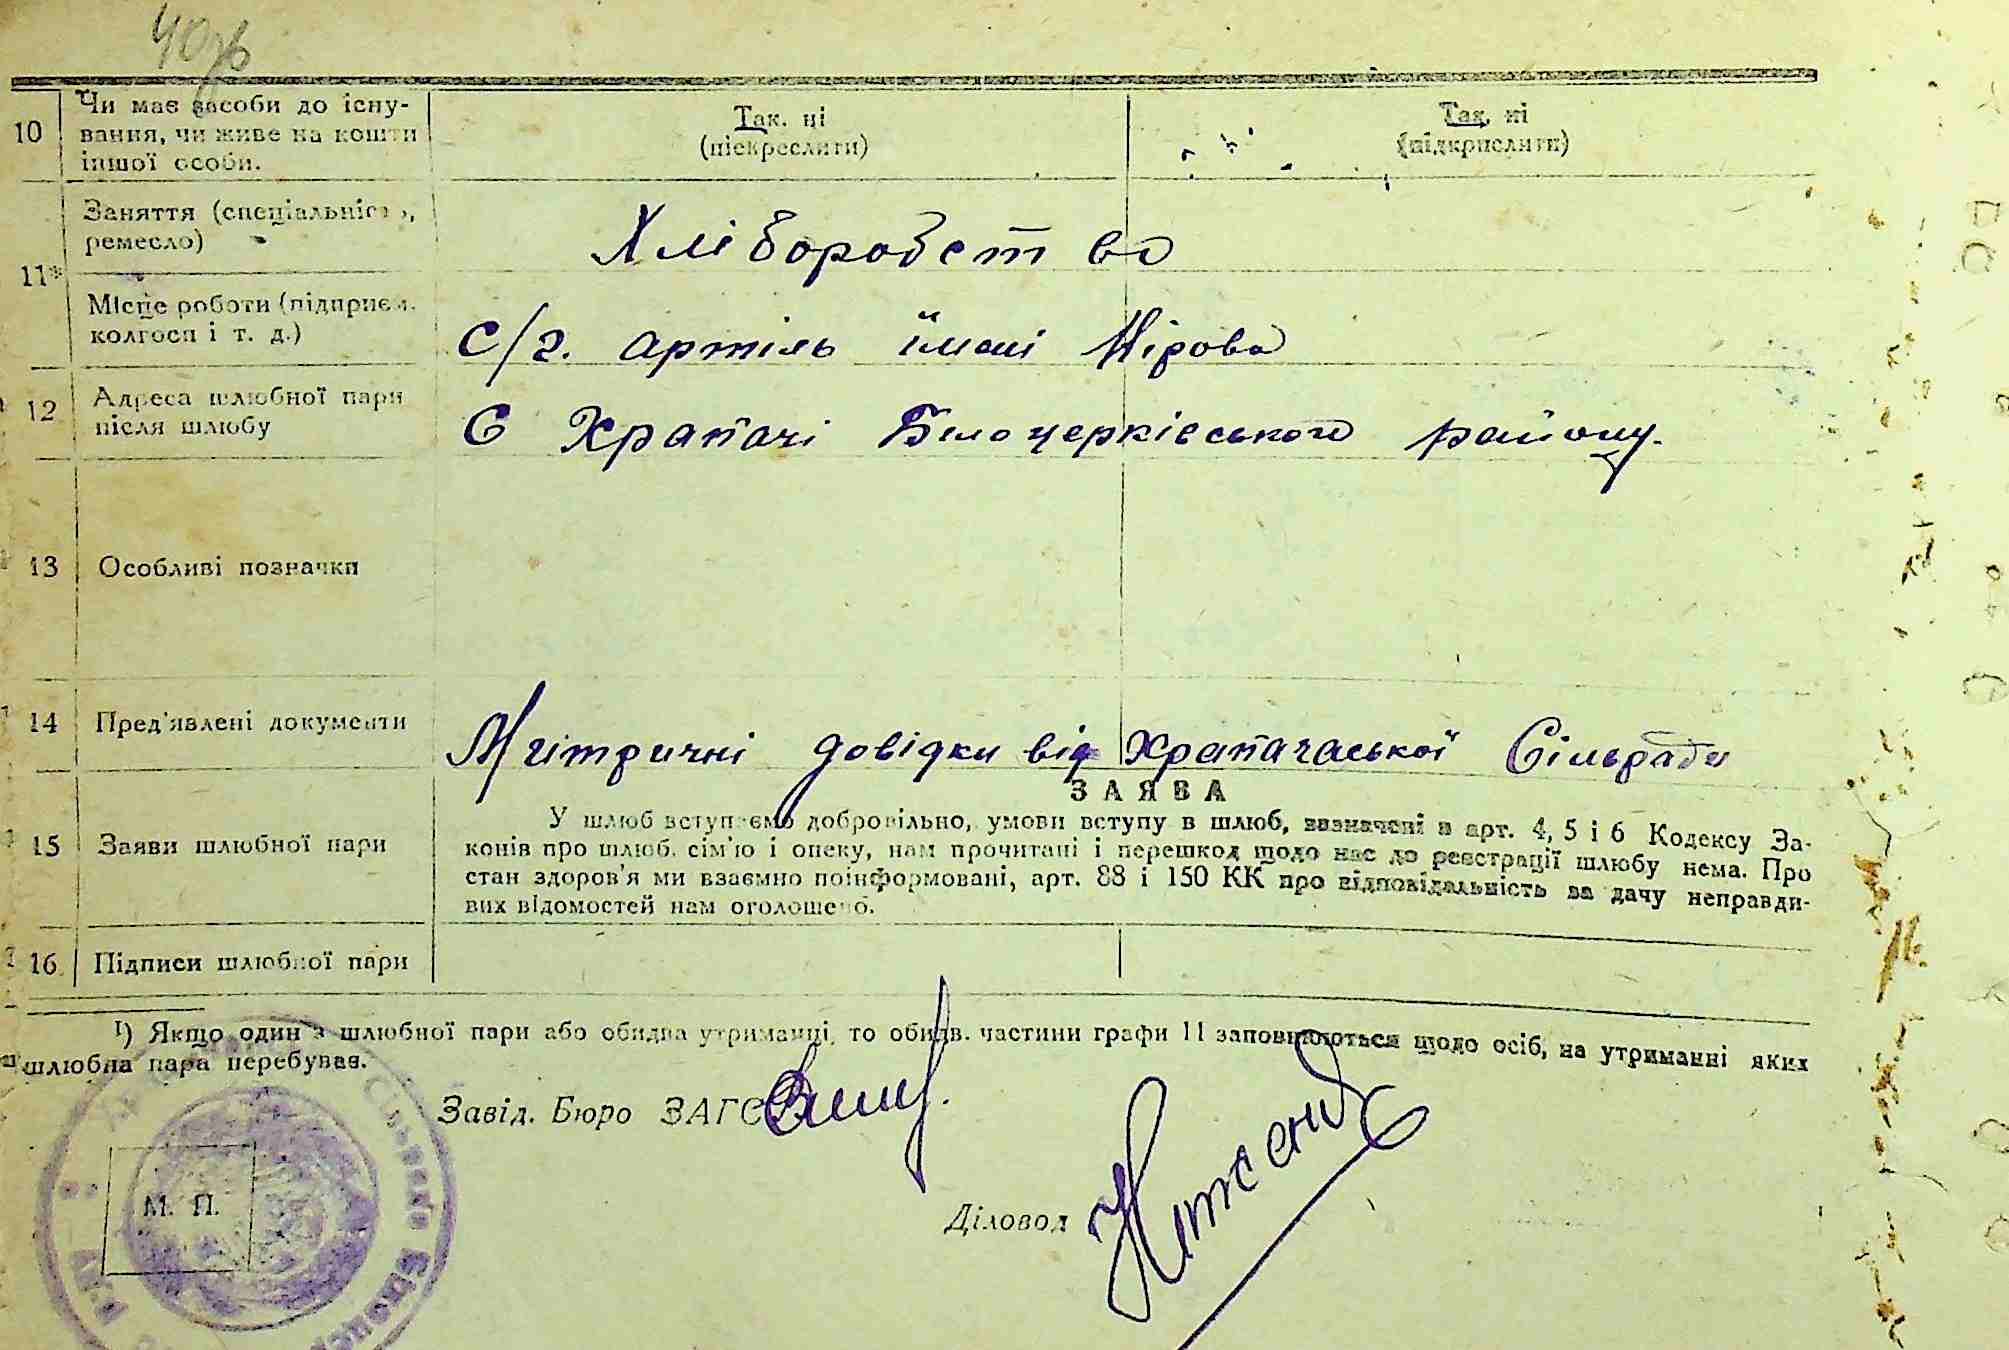 40зв
10 Чи має засоби до існу-
вання, чи живе на кошти
іншої особи.
Так. ні
(піекреслити)
Так. ні
(підкрислити)
11* Заняття (спеціальність,
ремесло)
Хліборобство
Місце роботи (підприєм.
колгосп і т. д.)
с/г. артіль їмені Кірова
12 Адреса шлюбної пари
після шлюбу
С Храпачі Білоцерківського району.
13 Особливі позначки
14 Пред'явлені документи
Метричні довідки від Храпачаської Сільради
15 Заяви шлюбної пари
ЗАЯВА
У шлюб вступаємо добровільно, умови вступу в шлюб, зазначені в арт. 4, 5 і 6 Кодексу За-
конів про шлюб, сім'ю і опеку, нам прочитані і перешкод щодо нас до реєстрації шлюбу нема. Про
стан здоров'я ми взаємно поінформовані, арт. 88 і 150 КК про відповідальність за дачу неправди-
вих відомостей нам оголошено.
16 Підписи шлюбної пари
1) Якщо один з шлюбної пари або обидва утриманці, то обидв. частини графи 11 заповнюються щодо осіб, на утриманні яких
шлюбна пара перебуває.
Завід. Бюро ЗАГС
Діловод
М. П.